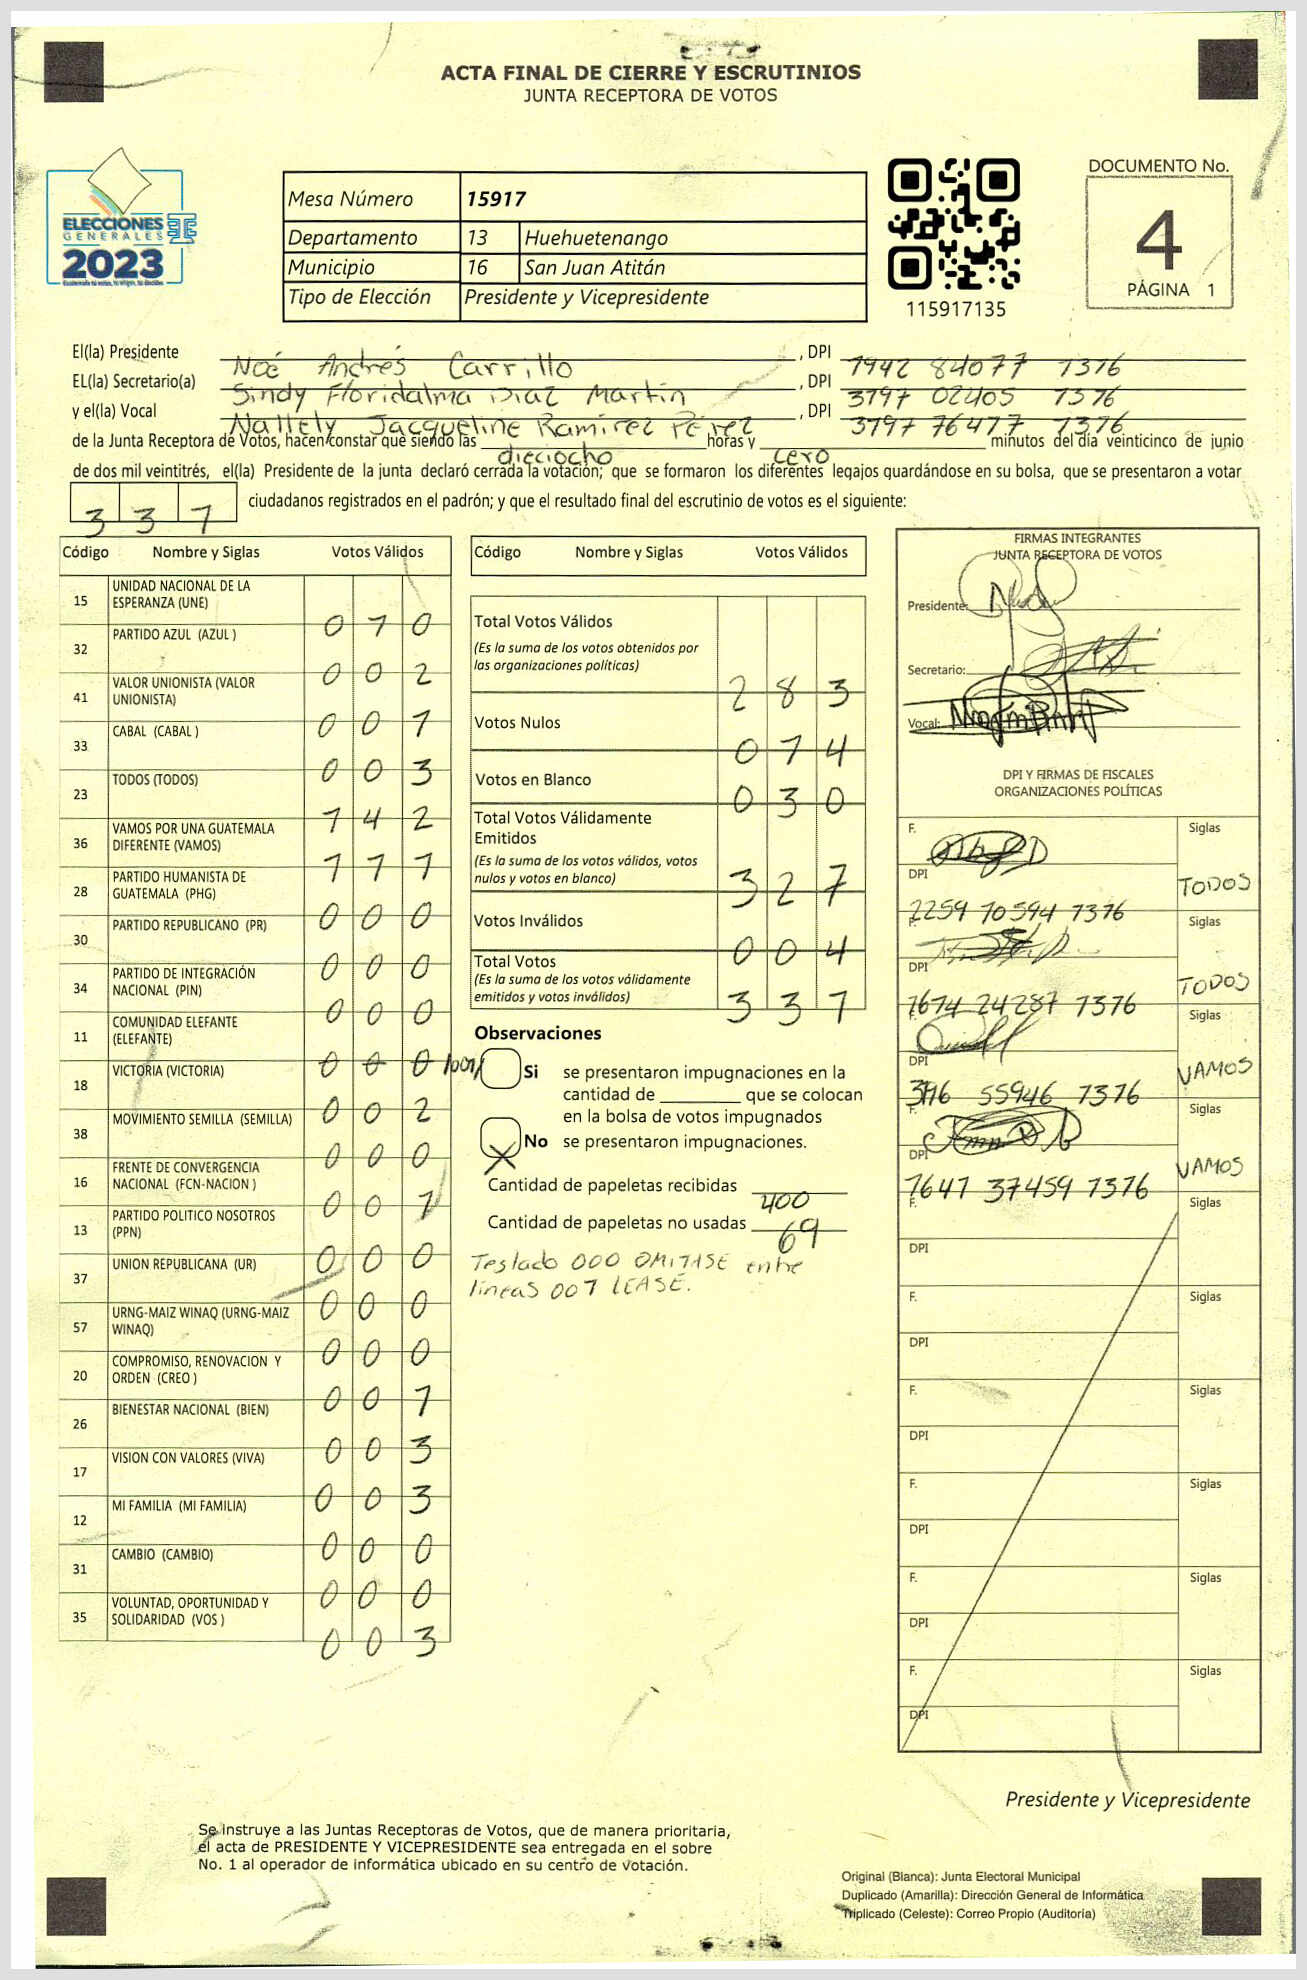 ACTA FINAL DE CIERRE Y ESCRUTINIOS
JUNTA RECEPTORA DE VOTOS
ELECCIONES
GENERALES
2023
Mesa Número 15917
Departamento 13 Huehuetenango
Municipio 16 San Juan Atitán
Tipo de Elección Presidente y Vicepresidente
115917135
DOCUMENTO No.
4
PÁGINA 1
El(la) Presidente Noé Andrés Carrillo , DPI 1942 84077 1316
EL(la) Secretario(a) Sindy Floridalma Diaz Martin , DPI 3197 02405 1316
y el(la) Vocal Nallely Jacqueline Ramírez Pérez , DPI 3197 76477 1316
de la Junta Receptora de Votos, hacen constar que siendo las dieciocho horas y cero minutos del día veinticinco de junio
de dos mil veintitrés, el(la) Presidente de la junta declaró cerrada la votación; que se formaron los diferentes legajos guardándose en su bolsa, que se presentaron a votar
331 ciudadanos registrados en el padrón; y que el resultado final del escrutinio de votos es el siguiente:
Código Nombre y Siglas Votos Válidos
15 UNIDAD NACIONAL DE LA ESPERANZA (UNE) 010
32 PARTIDO AZUL (AZUL ) 002
41 VALOR UNIONISTA (VALOR UNIONISTA) 001
33 CABAL (CABAL ) 003
23 TODOS (TODOS) 142
36 VAMOS POR UNA GUATEMALA DIFERENTE (VAMOS) 111
28 PARTIDO HUMANISTA DE GUATEMALA (PHG) 000
30 PARTIDO REPUBLICANO (PR) 000
34 PARTIDO DE INTEGRACIÓN NACIONAL (PIN) 000
11 COMUNIDAD ELEFANTE (ELEFANTE) 000 /001/
18 VICTORIA (VICTORIA) 002
38 MOVIMIENTO SEMILLA (SEMILLA) 000
16 FRENTE DE CONVERGENCIA NACIONAL (FCN-NACION ) 001
13 PARTIDO POLITICO NOSOTROS (PPN) 000
37 UNION REPUBLICANA (UR) 000
57 URNG-MAIZ WINAQ (URNG-MAIZ WINAQ) 000
20 COMPROMISO, RENOVACION Y ORDEN (CREO ) 001
26 BIENESTAR NACIONAL (BIEN) 003
17 VISION CON VALORES (VIVA) 003
12 MI FAMILIA (MI FAMILIA) 000
31 CAMBIO (CAMBIO) 000
35 VOLUNTAD, OPORTUNIDAD Y SOLIDARIDAD (VOS ) 003
Código Nombre y Siglas Votos Válidos
Total Votos Válidos 283
(Es la suma de los votos obtenidos por
las organizaciones políticas)
Votos Nulos 014
Votos en Blanco 030
Total Votos Válidamente
Emitidos 327
(Es la suma de los votos válidos, votos
nulos y votos en blanco)
Votos Inválidos 004
Total Votos 331
(Es la suma de los votos válidamente
emitidos y votos inválidos)
Observaciones
Si se presentaron impugnaciones en la
cantidad de ________ que se colocan
en la bolsa de votos impugnados
X No se presentaron impugnaciones.
Cantidad de papeletas recibidas 400
Cantidad de papeletas no usadas 69
Testado 000 OMITASE entre
lineas 001 LEASE.
FIRMAS INTEGRANTES
JUNTA RECEPTORA DE VOTOS
Presidente:
Secretario:
Vocal:
DPI Y FIRMAS DE FISCALES
ORGANIZACIONES POLÍTICAS
F. Siglas
DPI 2259 10594 1316 TODOS
F. Siglas
DPI 1614 24287 1316 TODOS
F. Siglas
DPI 3196 55946 1316 VAMOS
F. Siglas
DPI 1641 37459 1316 VAMOS
F. Siglas
DPI
F. Siglas
DPI
F. Siglas
DPI
F. Siglas
DPI
F. Siglas
DPI
F. Siglas
DPI
Presidente y Vicepresidente
Se instruye a las Juntas Receptoras de Votos, que de manera prioritaria,
el acta de PRESIDENTE Y VICEPRESIDENTE sea entregada en el sobre
No. 1 al operador de informática ubicado en su centro de votación.
Original (Blanca): Junta Electoral Municipal
Duplicado (Amarilla): Dirección General de Informática
Triplicado (Celeste): Correo Propio (Auditoría)